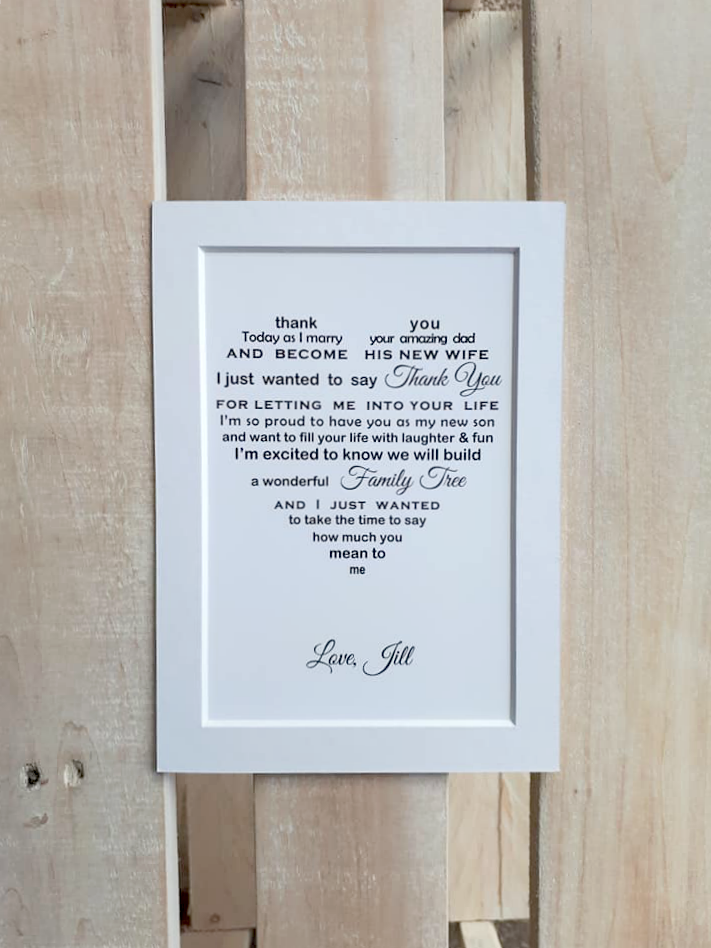 thank you
Today as I marry your amazing dad
AND BECOME HIS NEW WIFE
I just wanted to say Thank You
FOR LETTING ME INTO YOUR LIFE
I'm so proud to have you as my new son
and want to fill your life with laughter & fun
I'm excited to know we will build
a wonderful Family Tree
AND I JUST WANTED
to take the time to say
how much you
mean to
me
Love, Jill